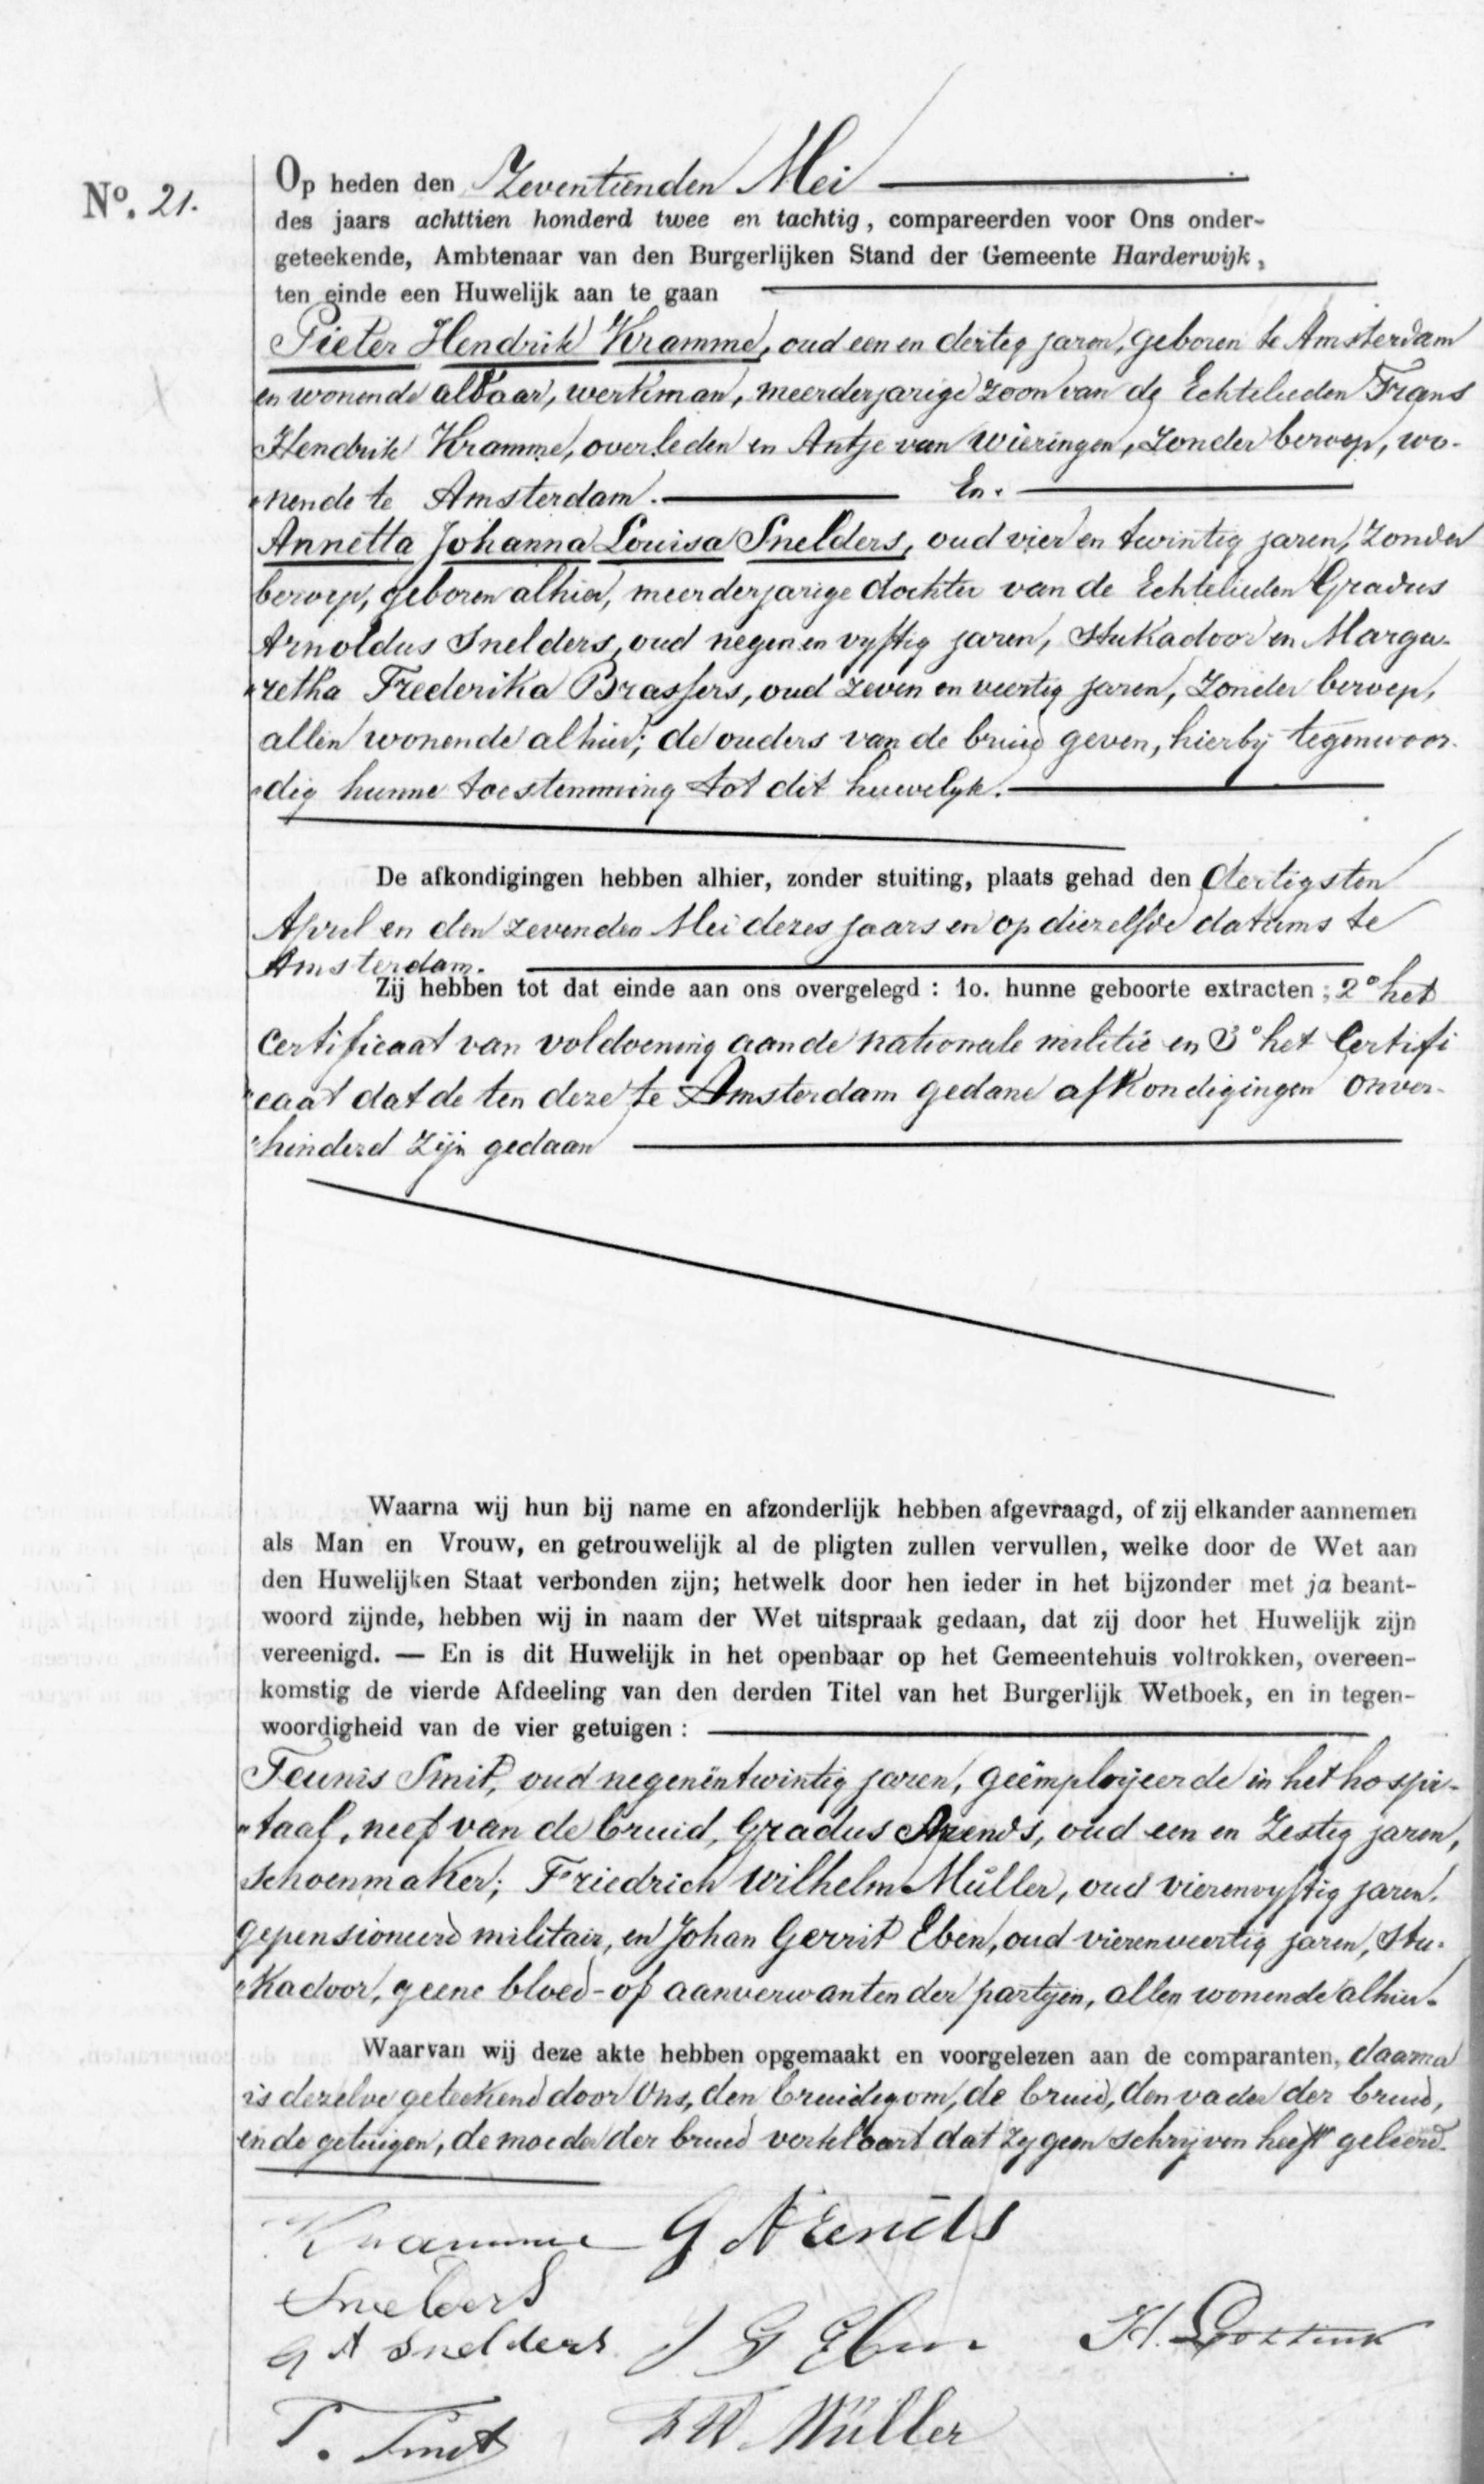 No. 21.
Op heden den Zeventienden Mei
des jaars achttien honderd twee en tachtig, compareerden voor Ons onder-
geteekende, Ambtenaar van den Burgerlijken Stand der Gemeente Harderwijk,
ten einde een Huwelijk aan te gaan
Pieter Hendrik Kramme, oud een en dertig jaren, geboren te Amsterdam
en wonende aldaar, werkman, meerderjarige zoon van de Echtelieden Frans
Hendrik Kramme, overleden en Antje van Wieringen, zonder beroep, wo-
nende te Amsterdam. En.
Annetta Johanna Louisa Snelders, oud vier en twintig jaren, zonder
beroep, geboren alhier, meerderjarige dochter van de Echtelieden Gradus
Arnoldus Snelders, oud negen en vyftig jaren, Stukadoor en Marga-
retha Frederika Brassers, oud zeven en veertig jaren, zonder beroep,
allen wonende alhier; de ouders van de bruid geven, hierby tegenwoor-
dig hunne toestemming tot dit huwelyk.
De afkondigingen hebben alhier, zonder stuiting, plaats gehad den dertigsten
April en den zevenden Mei dezes jaars en op diezelfde datums te
Amsterdam.
Zij hebben tot dat einde aan ons overgelegd : 1o. hunne geboorte extracten ; 2o het
Certificaat van voldoening aan de nationale militie en 3o het Certifi
caat dat de ten deze te Amsterdam gedane afkondigingen onver-
hinderd zijn gedaan
Waarna wij hun bij name en afzonderlijk hebben afgevraagd, of zij elkander aannemen
als Man en Vrouw, en getrouwelijk al de pligten zullen vervullen, welke door de Wet aan
den Huwelijken Staat verbonden zijn; hetwelk door hen ieder in het bijzonder met ja beant-
woord zijnde, hebben wij in naam der Wet uitspraak gedaan, dat zij door het Huwelijk zijn
vereenigd. — En is dit Huwelijk in het openbaar op het Gemeentehuis voltrokken, overeen-
komstig de vierde Afdeeling van den derden Titel van het Burgerlijk Wetboek, en in tegen-
woordigheid van de vier getuigen :
Teunis Smit, oud negenëntwintig jaren, geëmployeerde in het hospi-
taal, neef van de bruid, Gradus Arends, oud een en zestig jaren,
schoenmaker; Friedrich Wilhelm Müller, oud vierenvyftig jaren,
gepensioneerd militair, en Johan Gerrit Eben, oud vierenveertig jaren, stu-
kadoor, geene bloed- of aanverwanten der partyen, allen wonende alhier.
Waarvan wij deze akte hebben opgemaakt en voorgelezen aan de comparanten, daarna
is dezelve geteekend door Ons, den bruidegom, de bruid, den vader der bruid,
en de getuigen, de moeder der bruid verklaart dat zy geen schryven heeft geleerd.
Kramme G Arends
Snelders
G A Snelders J G Eben H.
T. Smit F W Müller